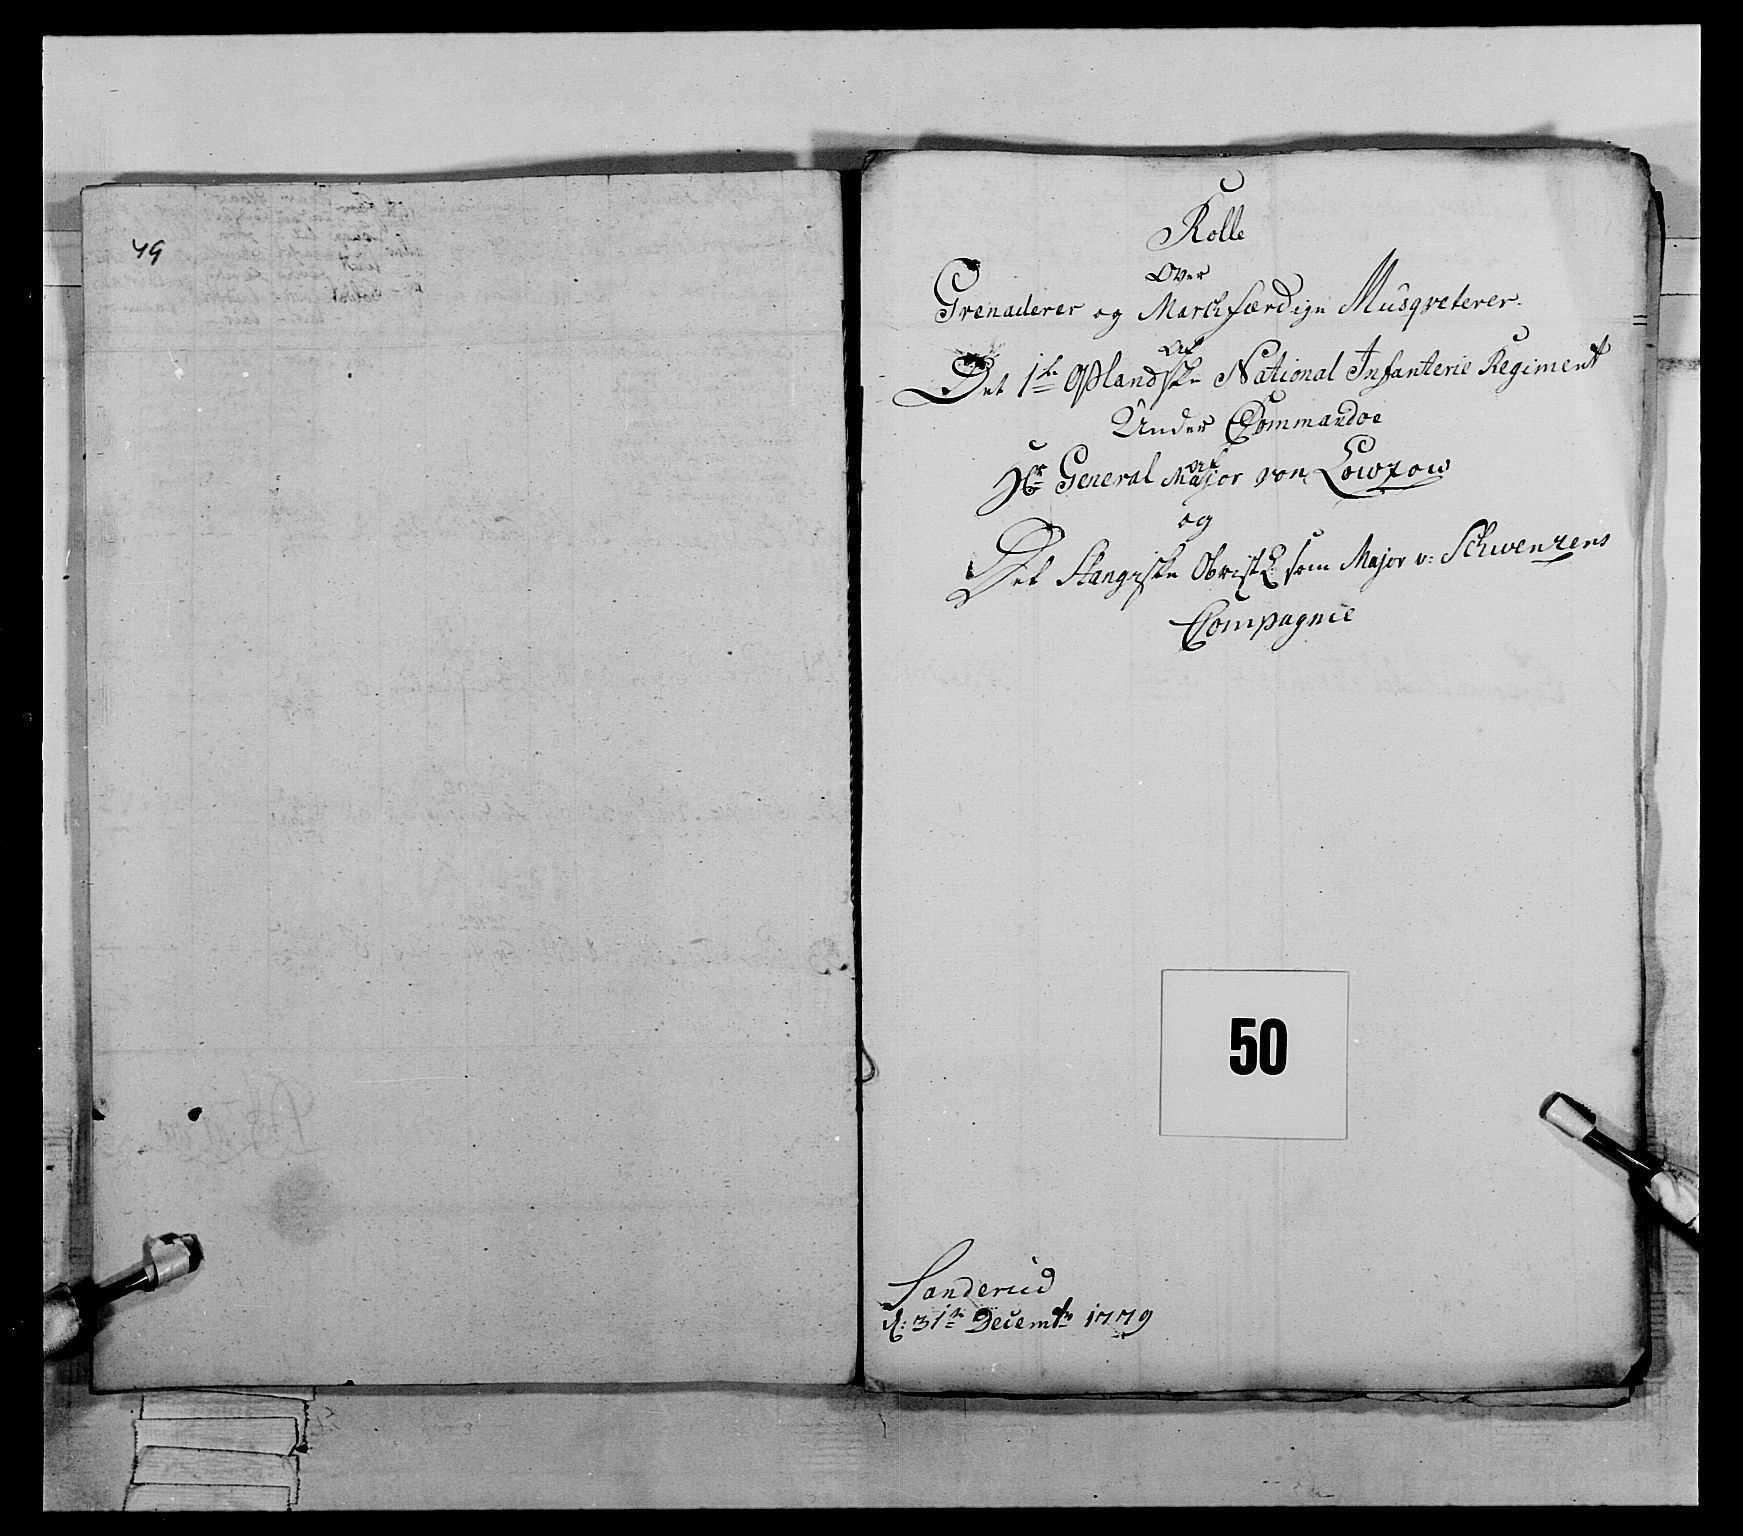 49
Rolle
Over
Grenaderer og Marchfærdige Musqveterer
Af
Det 1te Oplandske National Infanterie Regiment
Under Commandoe
af
Hr General Major von Lowzow
og
Det Stangeske Obristl: som Major v: Schwenzens
Compagnie
50
Sanderud
d: 31te Decembr 1779